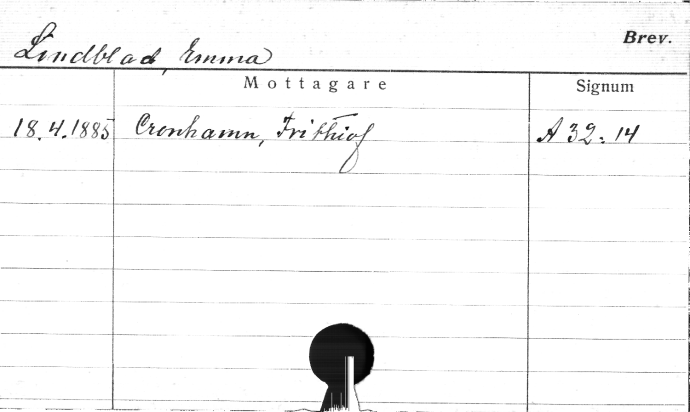 Brev.
Lindblad, Emma
Mottagare Signum
18.4.1885 Cronhamn, Frithiof A 32:14